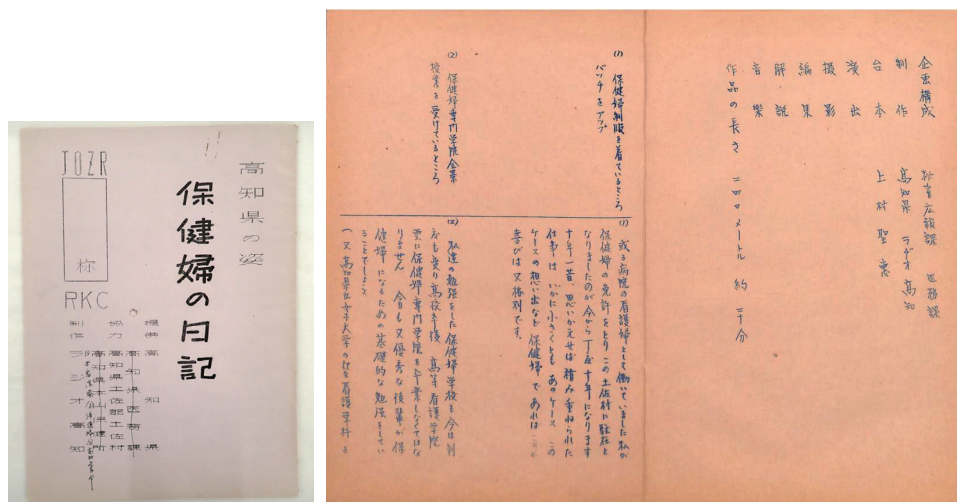 高知県の姿
保健婦の日記
JOZR
称
RKC
提供 高知県
協力 高知県医務課
高知県土佐郡土佐村
高知県本山保健所
制作 ラジオ高知
企画構成 県広報課 医務課
制作 高知県 ラヂオ高知
台本 上村聖恵
演出
撮影
編集
解説
音樂
作品の長さ 二四〇メートル 約二十分
(1) 保健婦制服を着ているところ
バッヂをアップ
(2) 保健婦専門学院全景
授業を受けているところ
(1) 或る病院の看護婦として働いていました私が
保健婦の免許をとりこの土佐村に駐在と
なりましたのが今から丁度十年になります
十年一昔、思いかえせば積み重ねられた
仕事はいかに小さくともあのケース この
ケースの想い出など保健婦であれば
喜びは又格別です。
(2) 私達の勉強をした保健婦学校も今は制
度も変り高校卒後 高等看護学院
更に保健婦専門学院を卒業しなくてはな
りません 今日も又優秀な後輩が保
健婦になるための基礎的な勉強をしてい
ることでしょう
(又高知県立女子大学の衛生看護学科